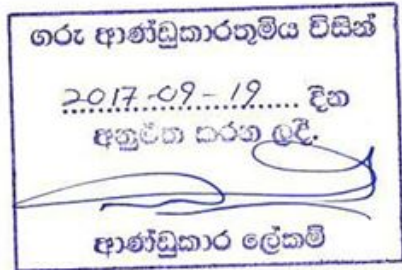 ගරු ආණ්ඩුකාරතුමිය විසින්
2017-09-19 දින
අනුමත කරන ලදී.
ආණ්ඩුකාර ලේකම්